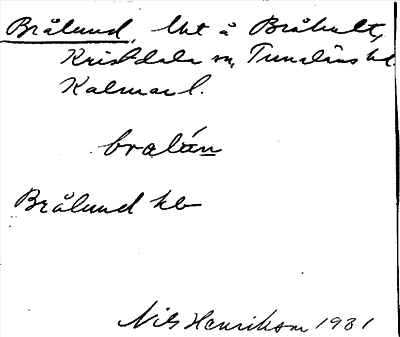 Brålund, lht å Bråhult,
Kristdala sn, Tunaläns hd.
Kalmar l.
bralún
Brålund kb
Nils Henrikson 1931